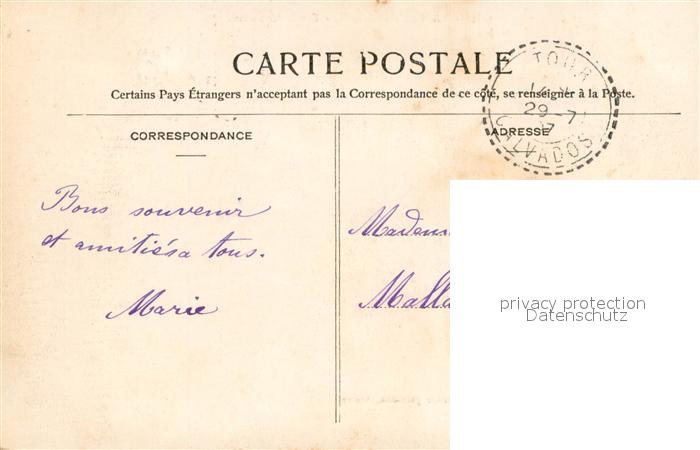 CARTE POSTALE
Certains Pays Étrangers n'acceptant pas la Correspondance de ce côté, se renseigner à la Poste.
TOUR
29-7
CALVADOS
CORRESPONDANCE
ADRESSE
Bons souvenir
et amitiés a tous.
Marie
privacy protection
Datenschutz